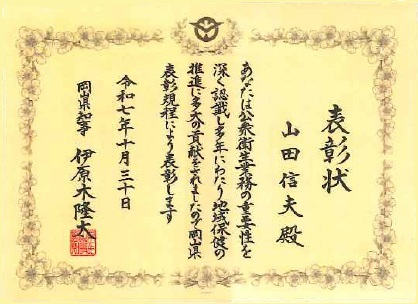 表彰状
山田信夫殿
あなたは公衆衛生業務の重要性を
深く認識し多年にわたり地域保健の
推進に多大の貢献をされましたので岡山県
表彰規程により表彰します
令和七年十月三十日
岡山県知事 伊原木隆太